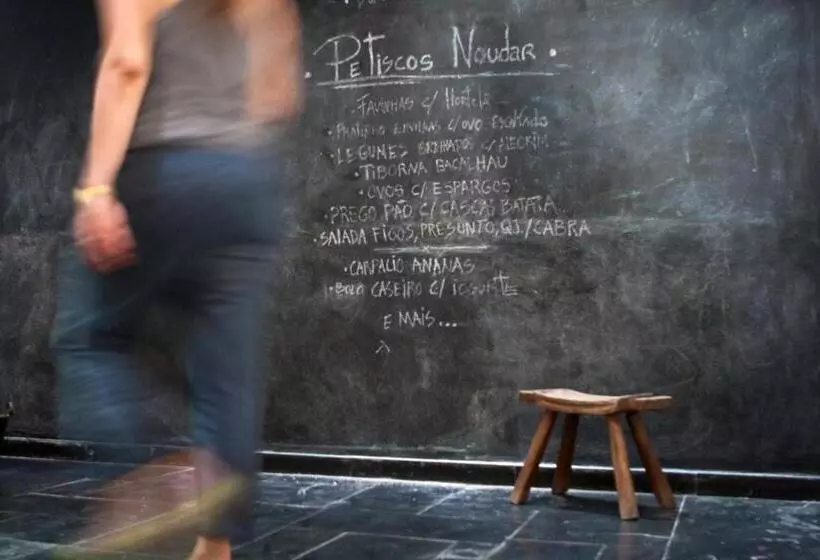 • Petiscos Noudar •
• FAVINHAS C/ Hortelã
C/OVO ESCALFADO
• LEGUMES GRELHADOS C/ALECRIM
• TIBORNA BACALHAU
• OVOS C/ ESPARGOS
• PREGO PÃO C/ CASCAS BATATA
• SALADA FIGOS, PRESUNTO, QJ/CABRA
• CARPALIO ANANAS
• Bolo CASEIRO C/ iogurte
E MAIS...